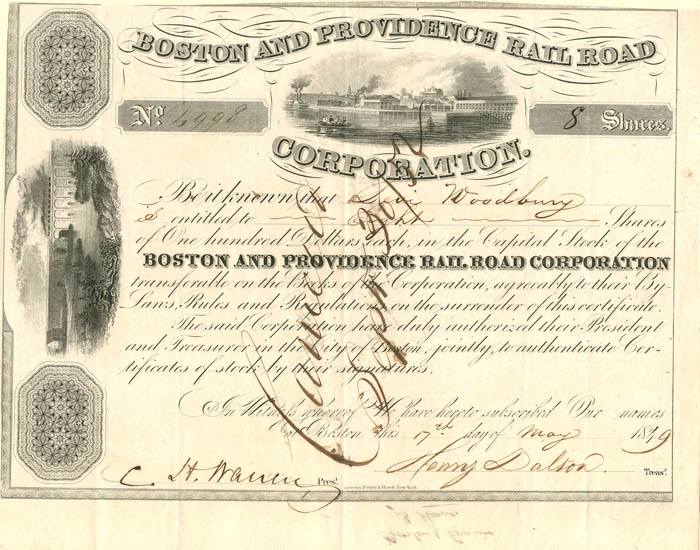 BOSTON AND PROVIDENCE RAIL ROAD
CORPORATION.
No. 4998
8 Shares.
Be it known that Levi Woodbury
is entitled to Eight Shares
of One hundred Dollars each, in the Capital Stock of the
BOSTON AND PROVIDENCE RAIL ROAD CORPORATION
transferable on the Books of the Corporation, agreeably to their By-
Laws, Rules and Regulations on the surrender of this certificate.
The said Corporation have duly authorized their President
and Treasurer in the City of Boston, jointly, to authenticate Cer-
tificates of stock by their signatures.
In Witness whereof We have hereto subscribed Our names
at Boston this 17th day of May 1849
C. H. Warren Prest.
Henry Dalton. Treasr.
Cancelled